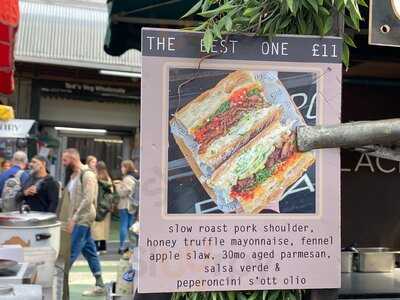 THE BEST ONE £11
slow roast pork shoulder,
honey truffle mayonnaise, fennel
apple slaw, 30mo aged parmesan,
salsa verde &
peperoncini s'ott olio
Ted's Veg Wholesale